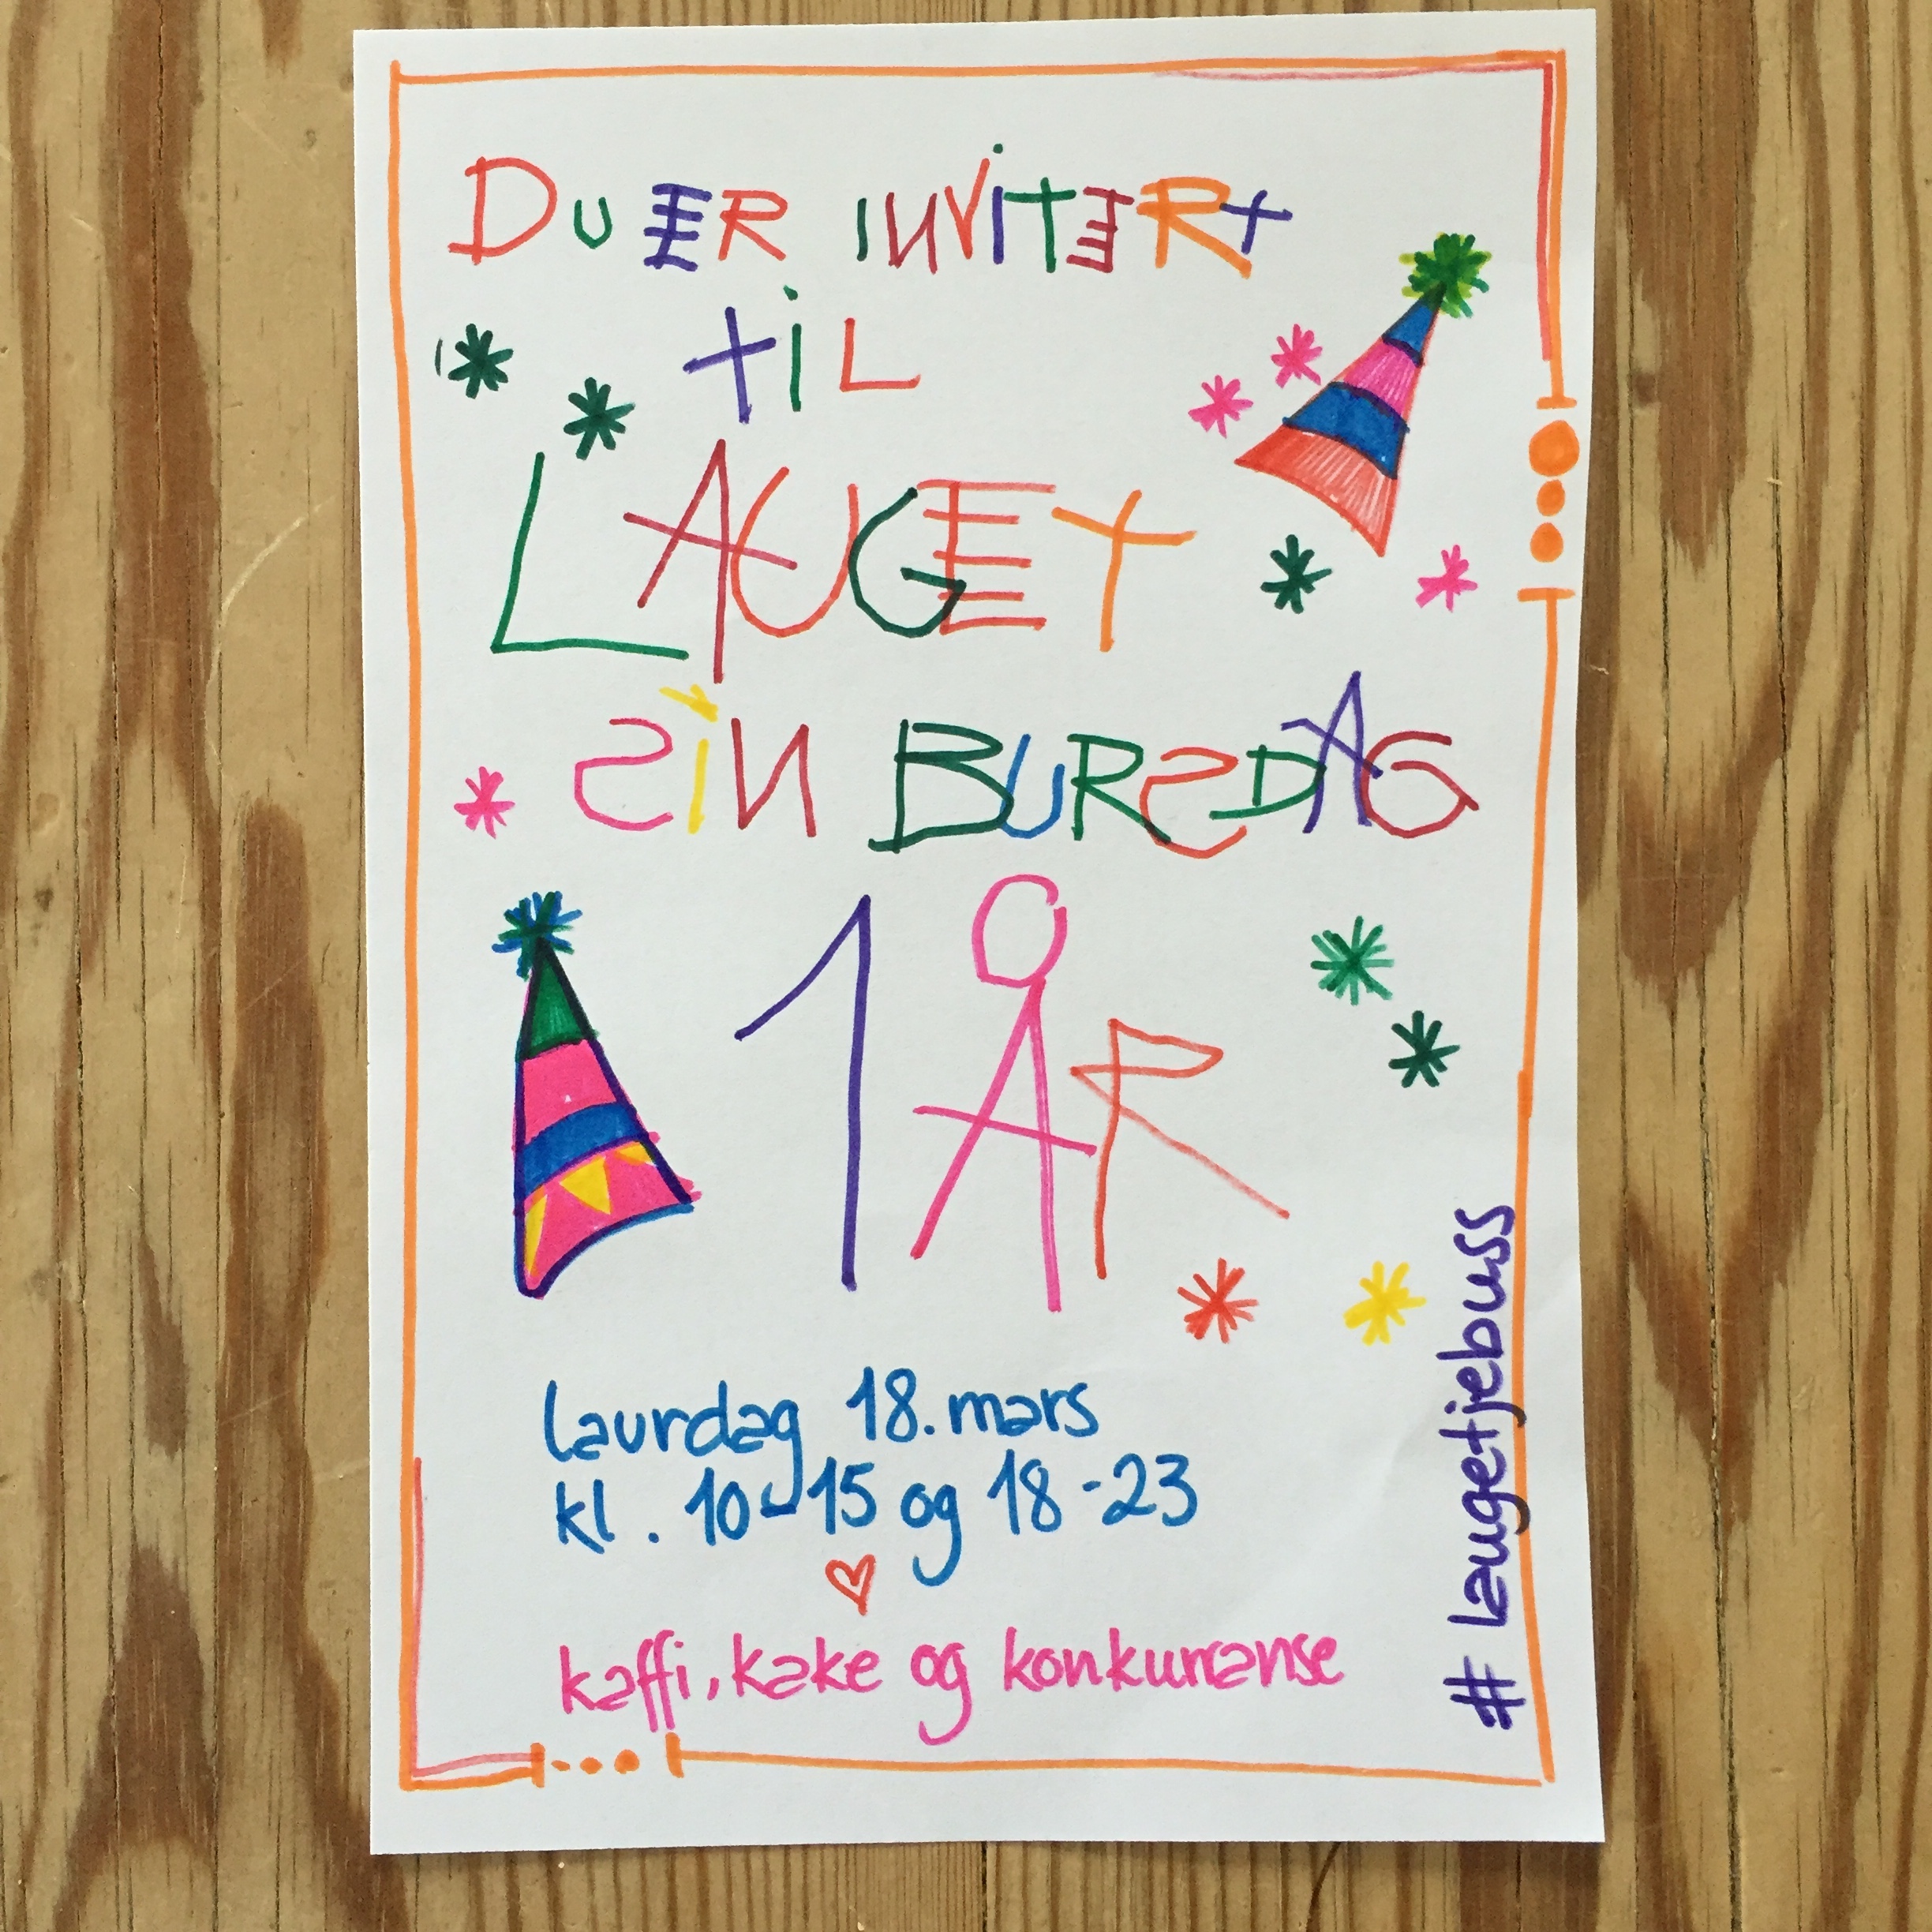 DU ER INVITERT
TIL
LAUGET
SIN BURSDAG
1 ÅR
laurdag 18. mars
kl. 10-15 og 18-23
kaffi, kake og konkurranse
#laugetjebuss